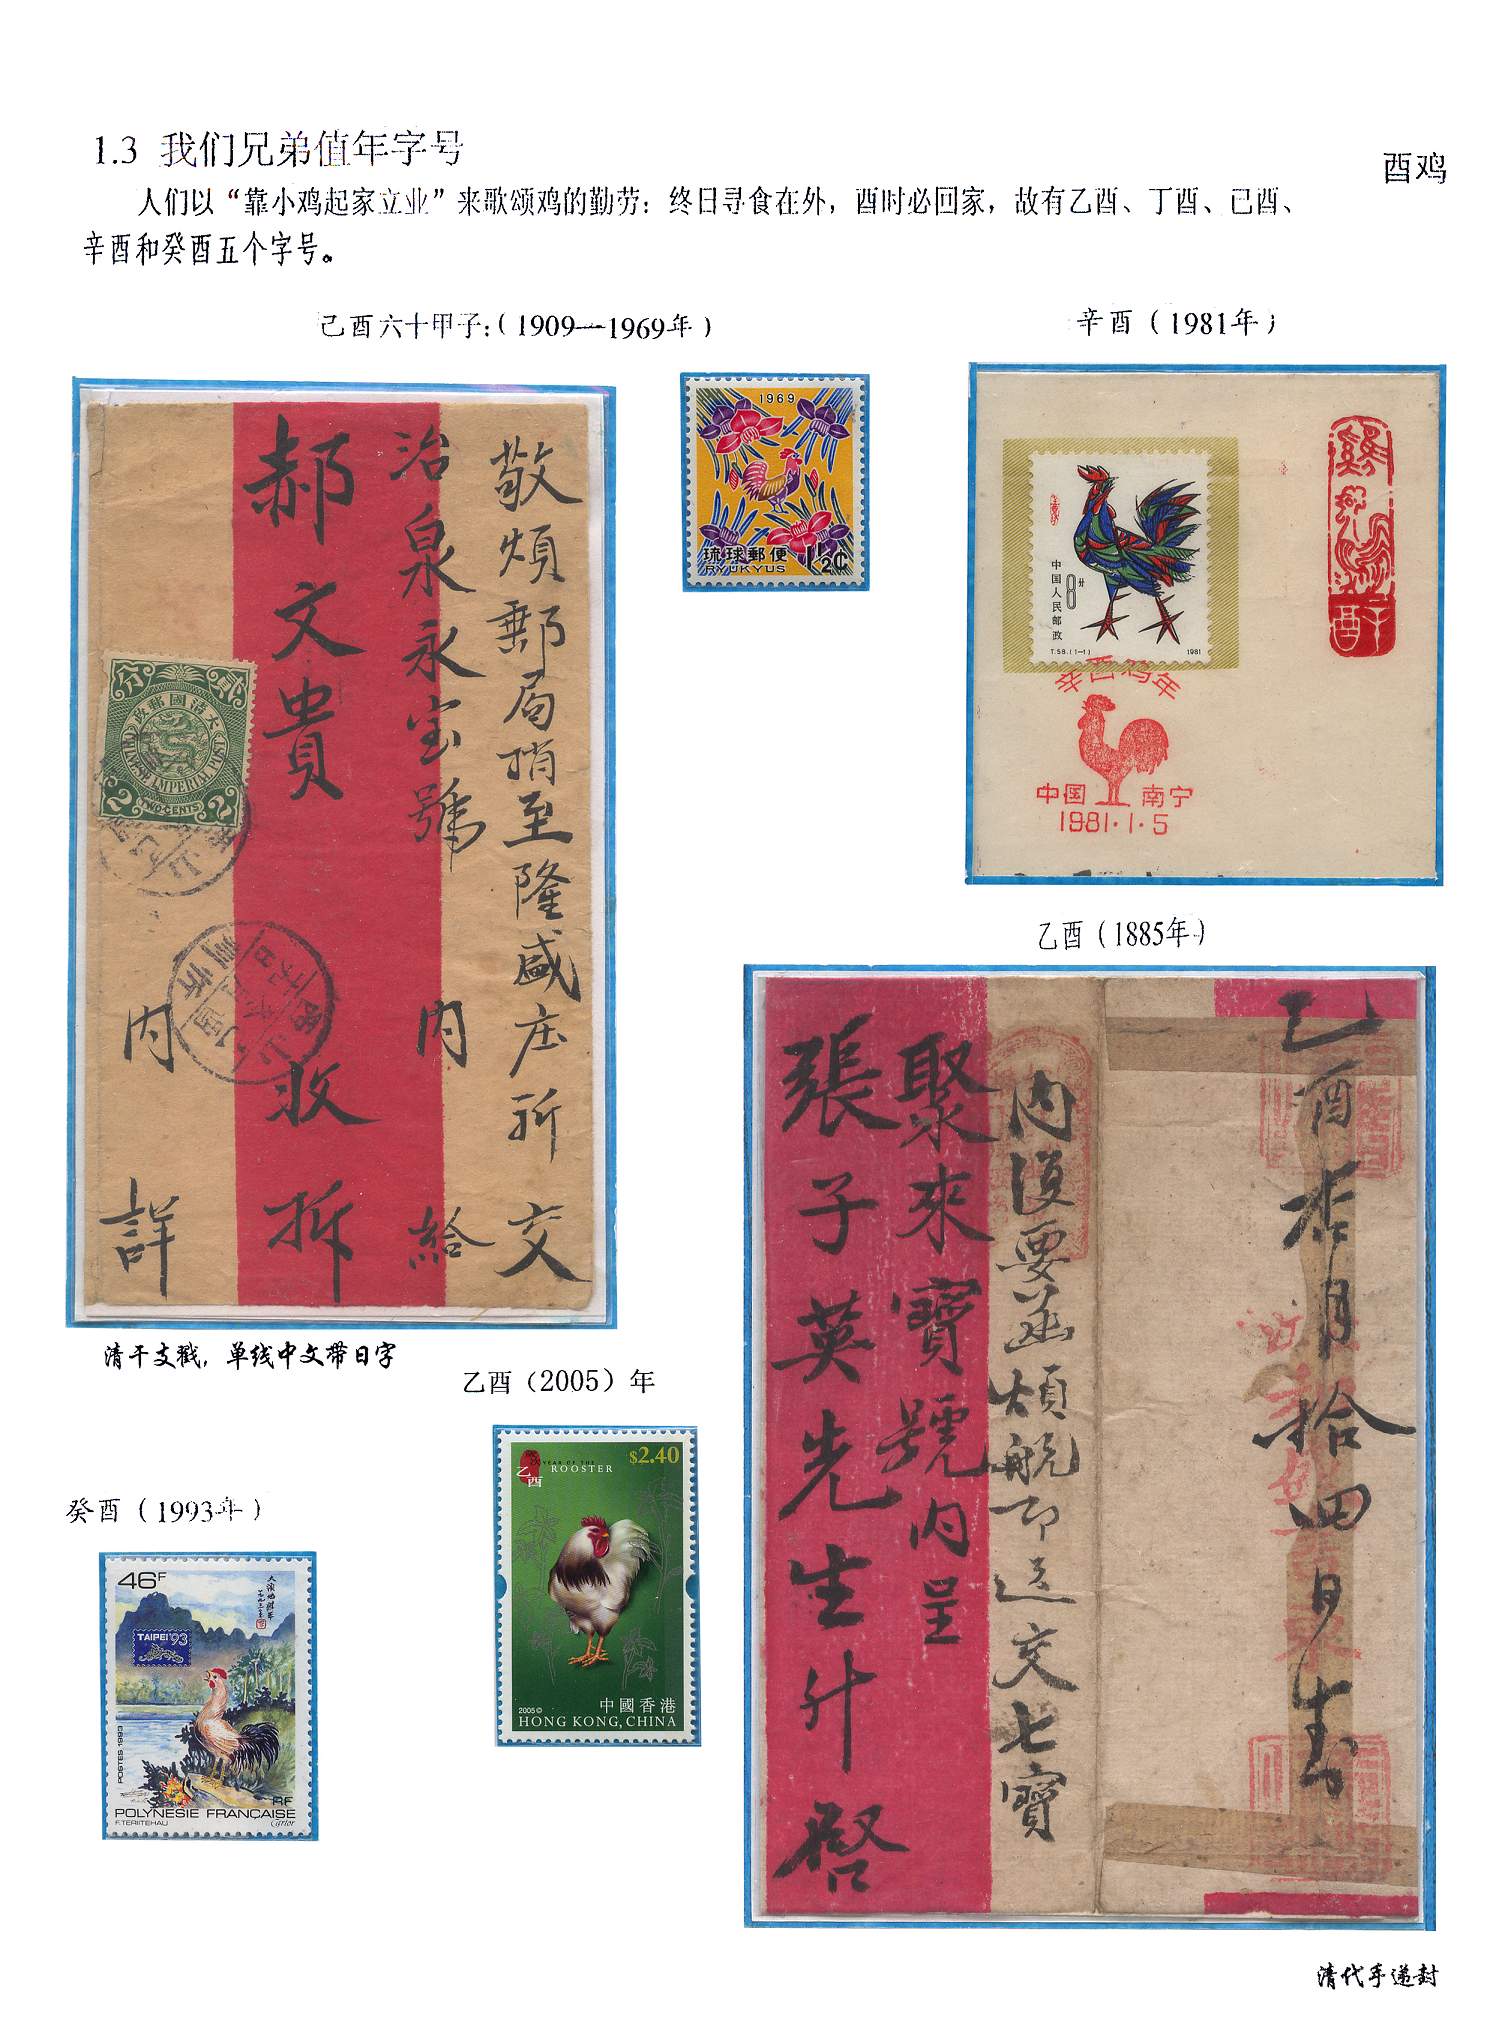 1.3 我们兄弟值年字号
酉鸡
人们以“靠小鸡起家立业”来歌颂鸡的勤劳：终日寻食在外，酉时必回家，故有乙酉、丁酉、己酉、
辛酉和癸酉五个字号。
己酉六十甲子:(1909—1969年)
辛酉（1981年）
敬煩郵局捎至隆盛庄所交
治泉永宝號 内 給
郝文貴 收拆
内 詳
大清國郵政
貳分
CHINESE IMPERIAL POST
2 TWO CENTS 2
1969
琉球郵便
RYUKYUS
1½¢
中国人民邮政
8分
T.58.(1-1) 1981
辛酉鸡年
中国 南宁
1981·1·5
辛酉
乙酉（1885年）
乙酉 月拾四日
内 要函煩 即送交七寶
聚來寶號内呈
張子英先生升啓
清干支戳，单线中文带日字
乙酉（2005）年
$2.40
YEAR OF THE
ROOSTER
乙酉
2005©
中國香港
HONG KONG, CHINA
癸酉（1993年）
46F
TAIPEI'93
POSTES 1993
RF
POLYNESIE FRANÇAISE
F. TERIITEHAU
Cartor
清代手递封